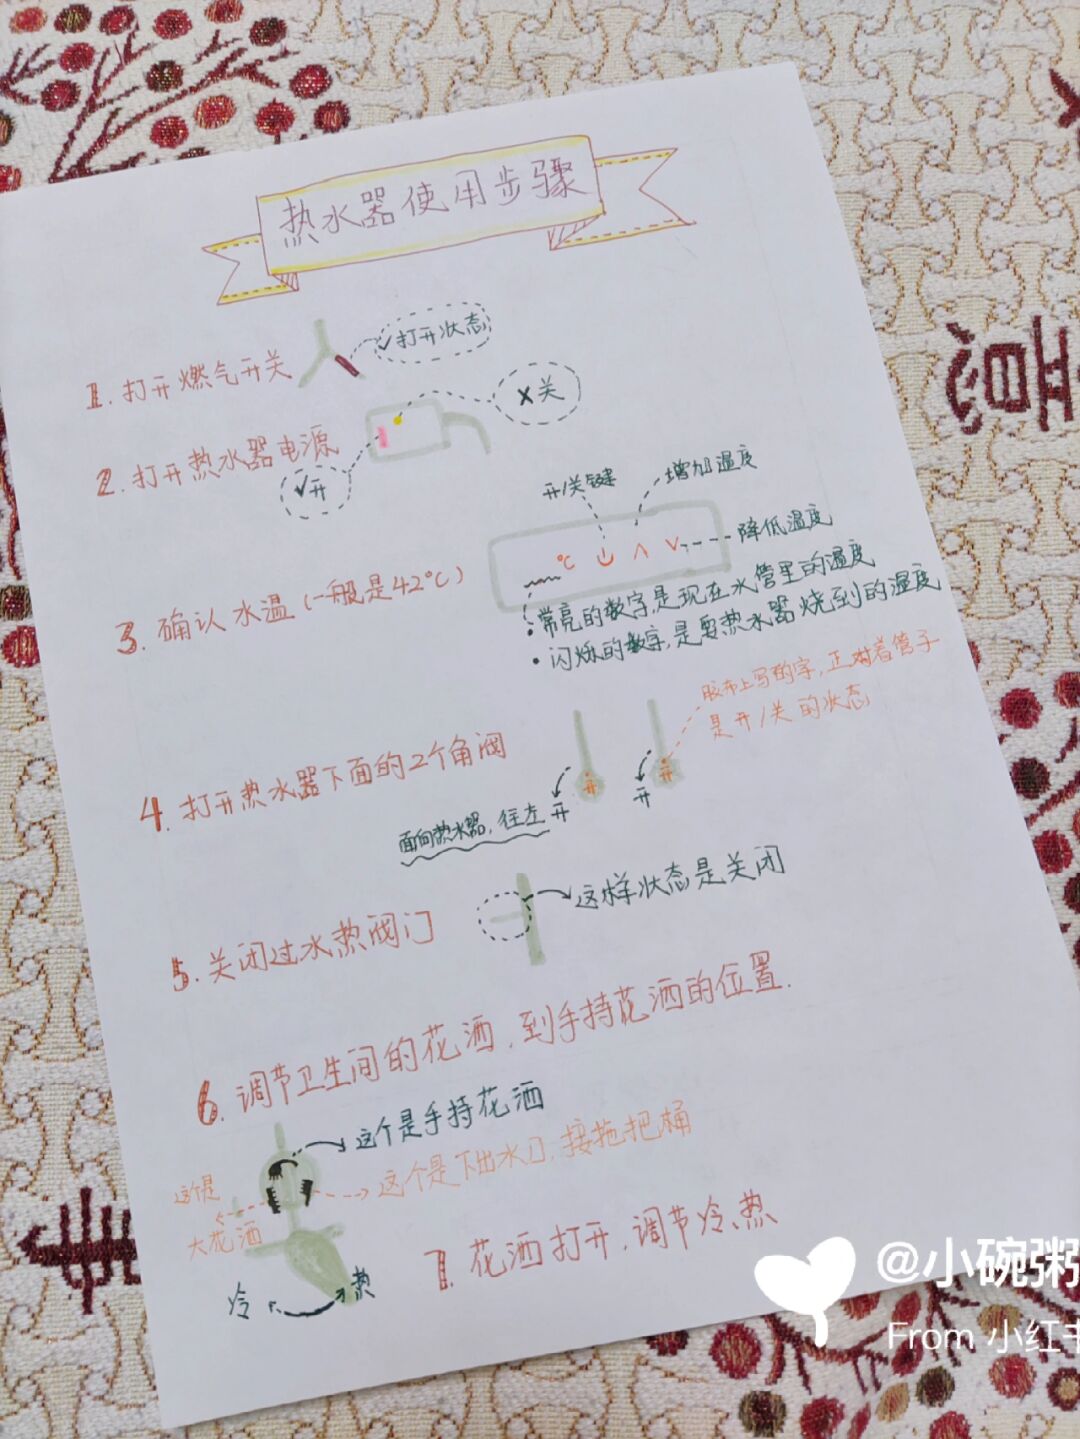 热水器使用步骤
1. 打开燃气开关
✓打开状态
2. 打开热水器电源
×关
✓开
3. 确认水温(一般是42°C)
开/关键
增加温度
降低温度
°C
• 常亮的数字,是现在水管里的温度
• 闪烁的数字,是要热水器烧到的温度
4. 打开热水器下面的2个角阀
胶布上写的字,正对着管子
是开/关的状态
开
开
开
开
面向热水器,往左
5. 关闭过水热阀门
这样状态是关闭
6. 调节卫生间的花洒,到手持花洒的位置.
这个是手持花洒
这个是下出水口,接拖把桶
这个是
大花洒
冷
热
7. 花洒打开,调节冷热
@小碗粥
From 小红书